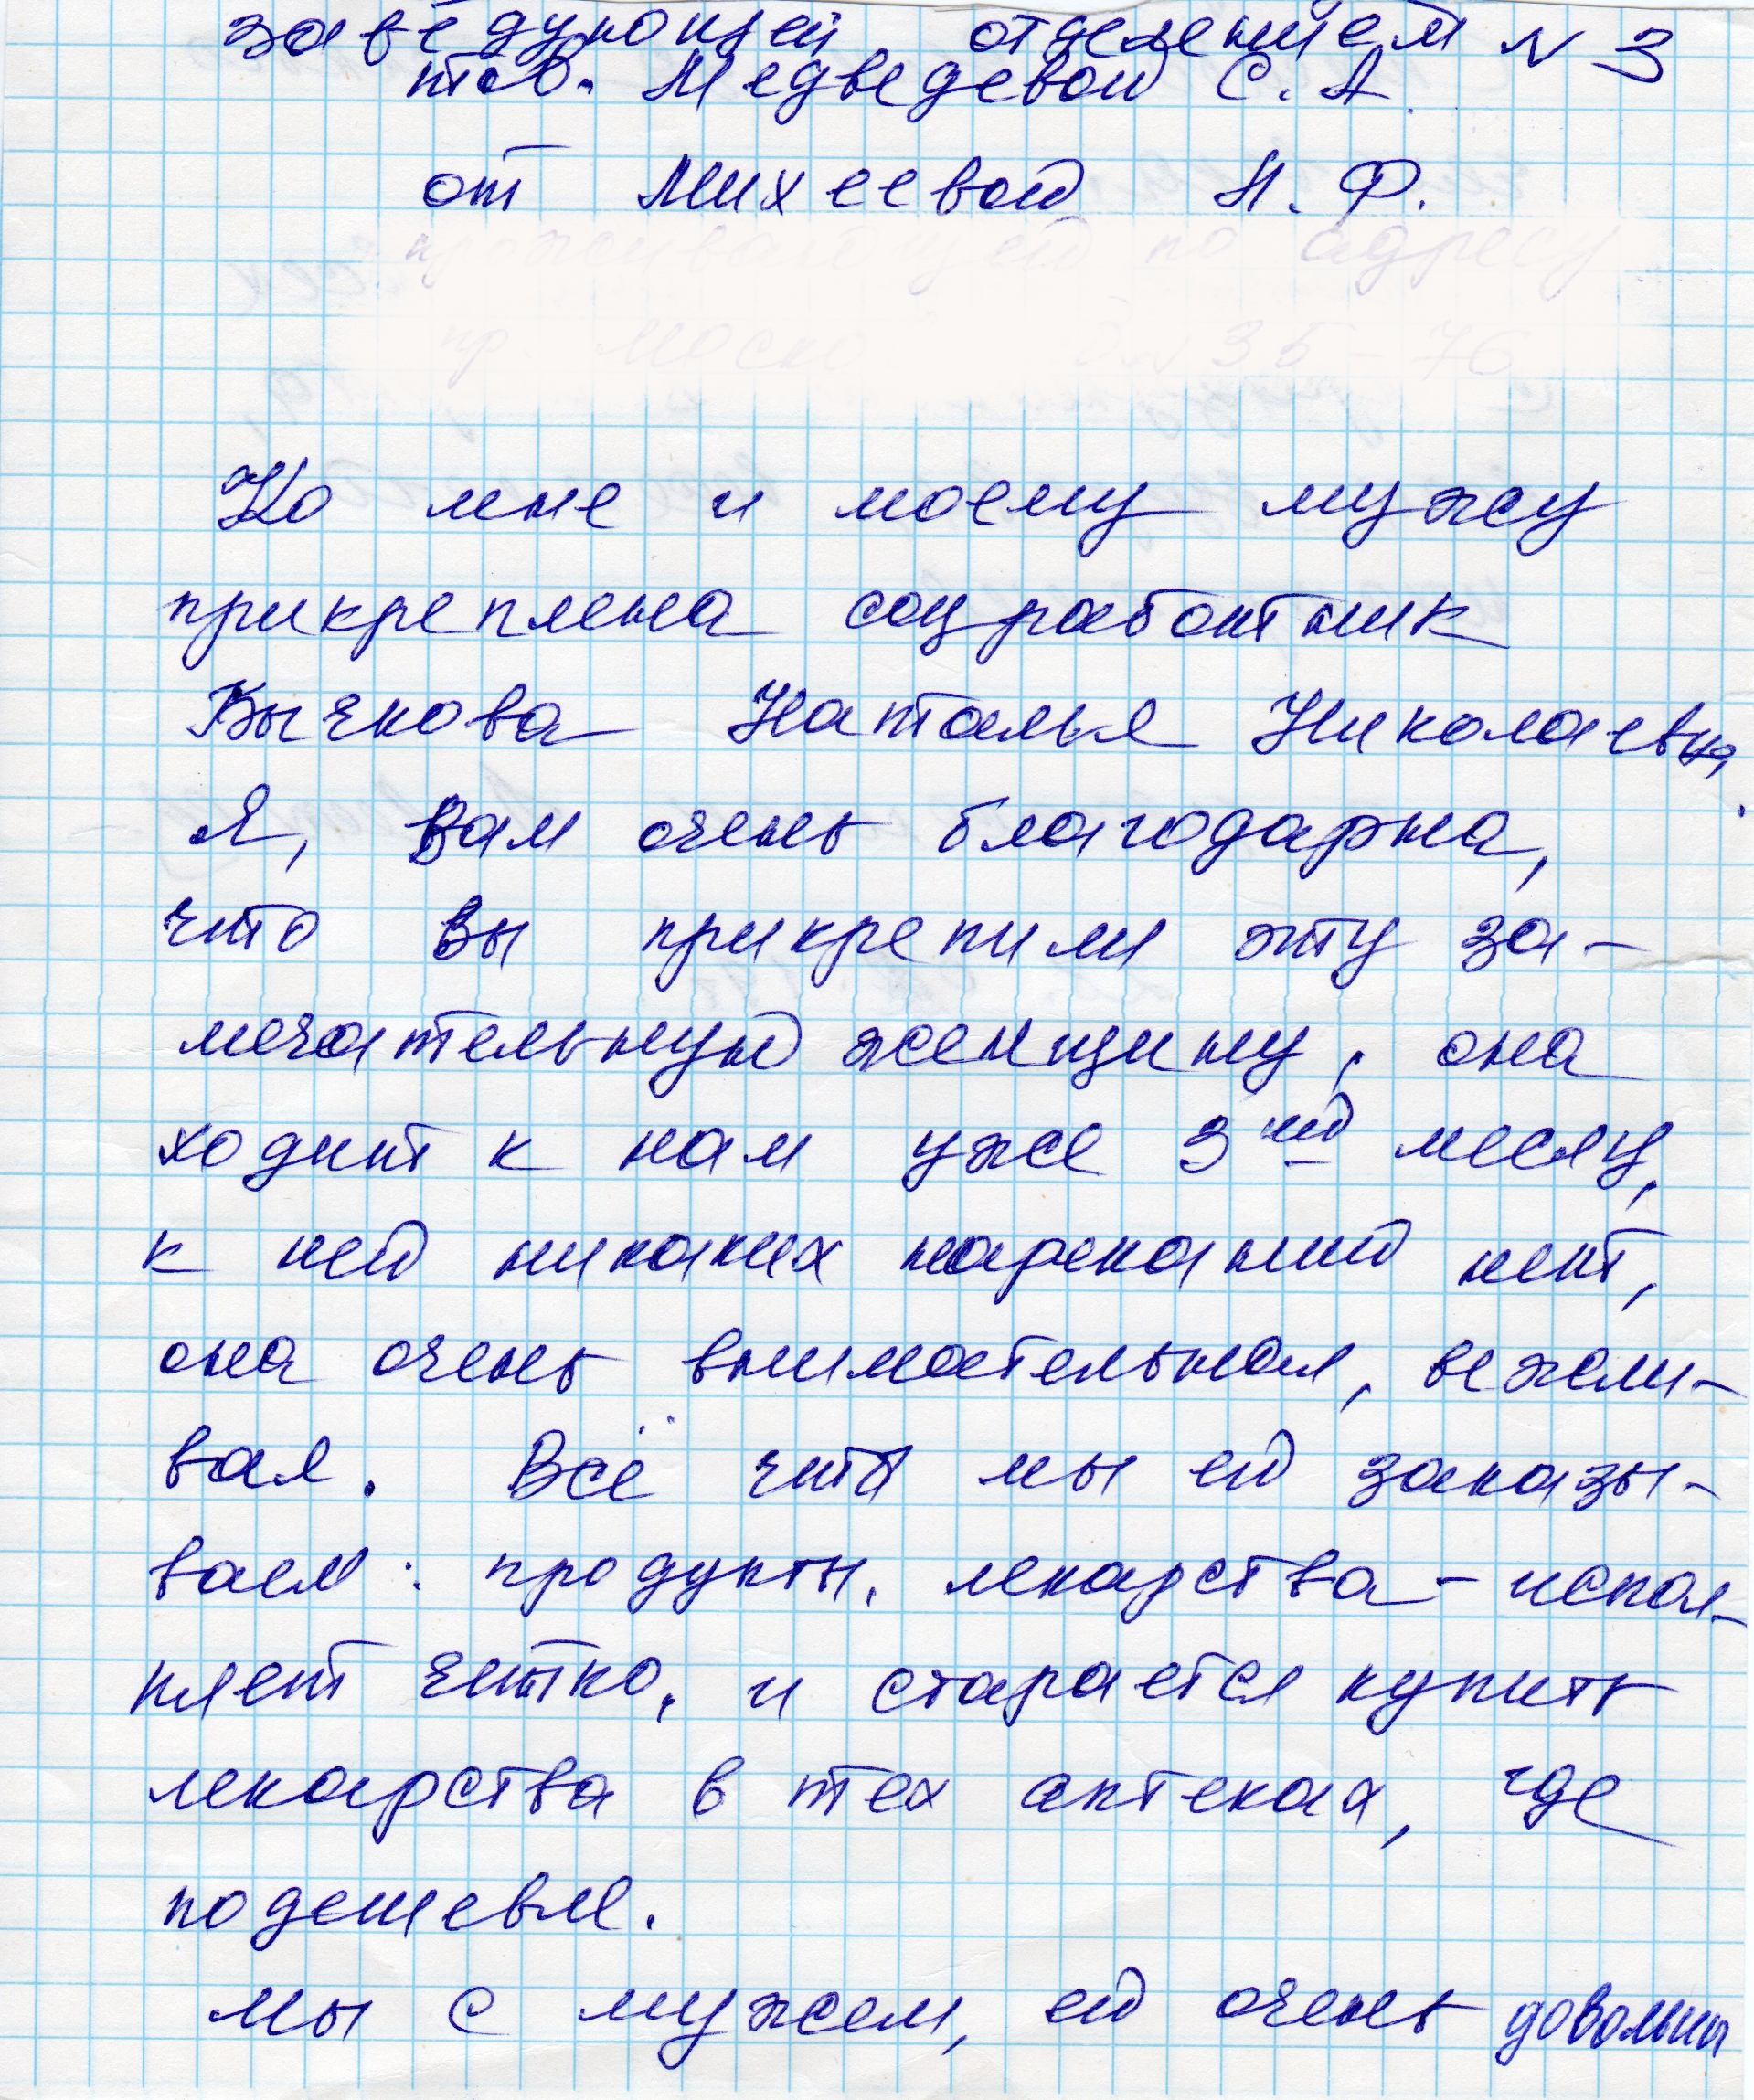 заведующей отделением N 3
тов. Медведевой С. А.
от Михеевой Н. Ф.
Ко мне и моему мужу
прикреплена соцработник
Бычкова Наталья Николаевна,
Я, вам очень благодарна,
что вы прикрепили эту за-
мечательную женщину, она
ходит к нам уже 3ий месяц,
к ней никаких нареканий нет,
она очень внимательная, вежли-
вая. Всё что мы ей заказы-
ваем: продукты, лекарства - испол-
няет чётко, и старается купить
лекарства в тех аптеках, где
подешевле.
мы с мужем, ей очень довольны